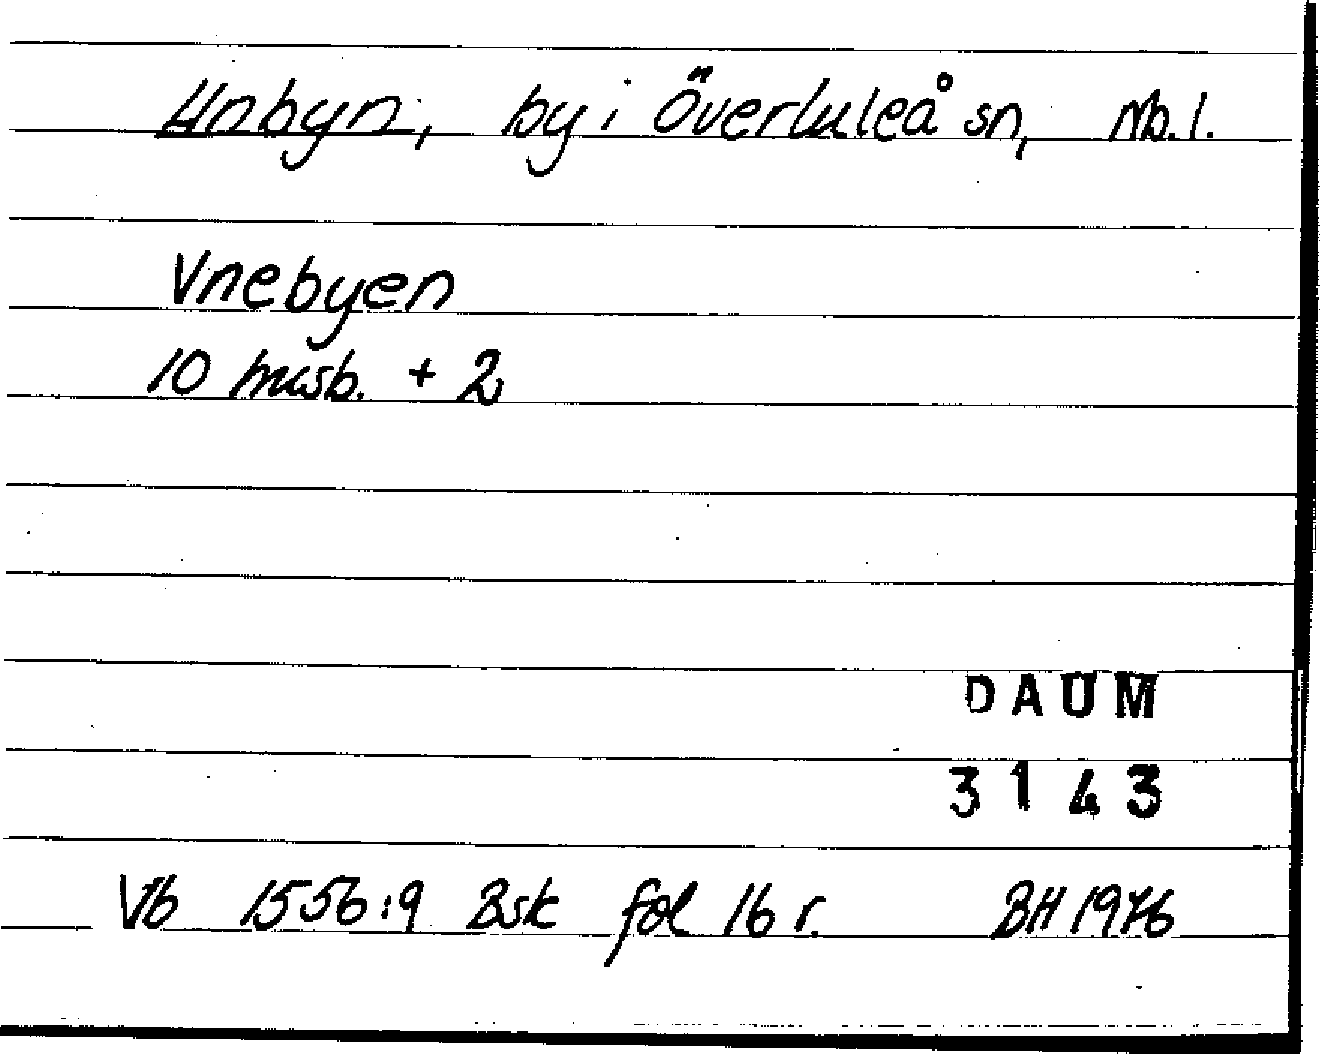 Unbyn, by i Överluleå sn, Nb. l.
Vnebyen
10 husb. + 2
DAUM
3143
Vb 1556:9 Bsk fol 16 r. BH 1976